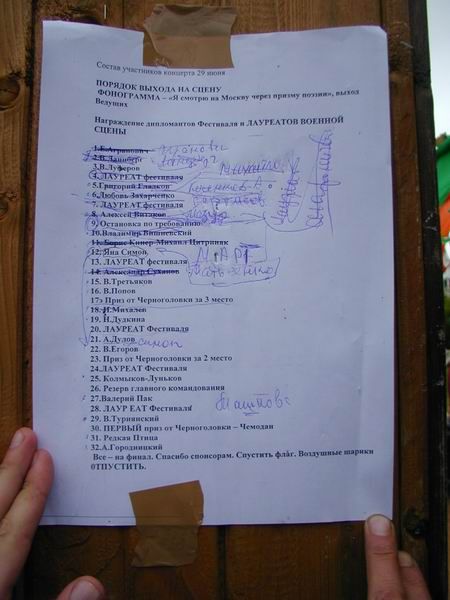 Состав участников концерта 29 июня
ПОРЯДОК ВЫХОДА НА СЦЕНУ
ФОНОГРАММА – «Я смотрю на Москву через призму поэзии», выход
Ведущих
Награждение дипломантов Фестиваля и ЛАУРЕАТОВ ВОЕННОЙ
СЦЕНЫ
3.В.Луферов
4. ЛАУРЕАТ фестиваля
5.Григорий Гладков
6.Любовь Захарченко
7. ЛАУРЕАТ фестиваля
8. Алексей Витаков
9.Остановка по требованию
10.Владимир Вишневский
11. Борис Кинер-Михаил Цитриняк
12. Яна Симон
МАРГ
13. ЛАУРЕАТ фестиваля
14. Александр Суханов
15. В.Третьяков
16. В.Попов
17. Приз от Черноголовки за 3 место
18. И.Михалев
19. Н.Дудкина
20. ЛАУРЕАТ Фестивадя
21. А.Дулов симон
22. В.Егоров
23. Приз от Черноголовки за 2 место
24.ЛАУРЕАТ Фестиваля
25. Колмыков-Луньков
26. Резерв главного командования
27.Валерий Пак
28. ЛАУР ЕАТ Фестиваля
29. В.Туриянский
30. ПЕРВЫЙ приз от Черноголовки – Чемодан
31. Редкая Птица
32.А.Городницкий
Все – на финал. Спасибо спонсорам. Спустить флаг. Воздушные шарики
0ТПУСТИТЬ.